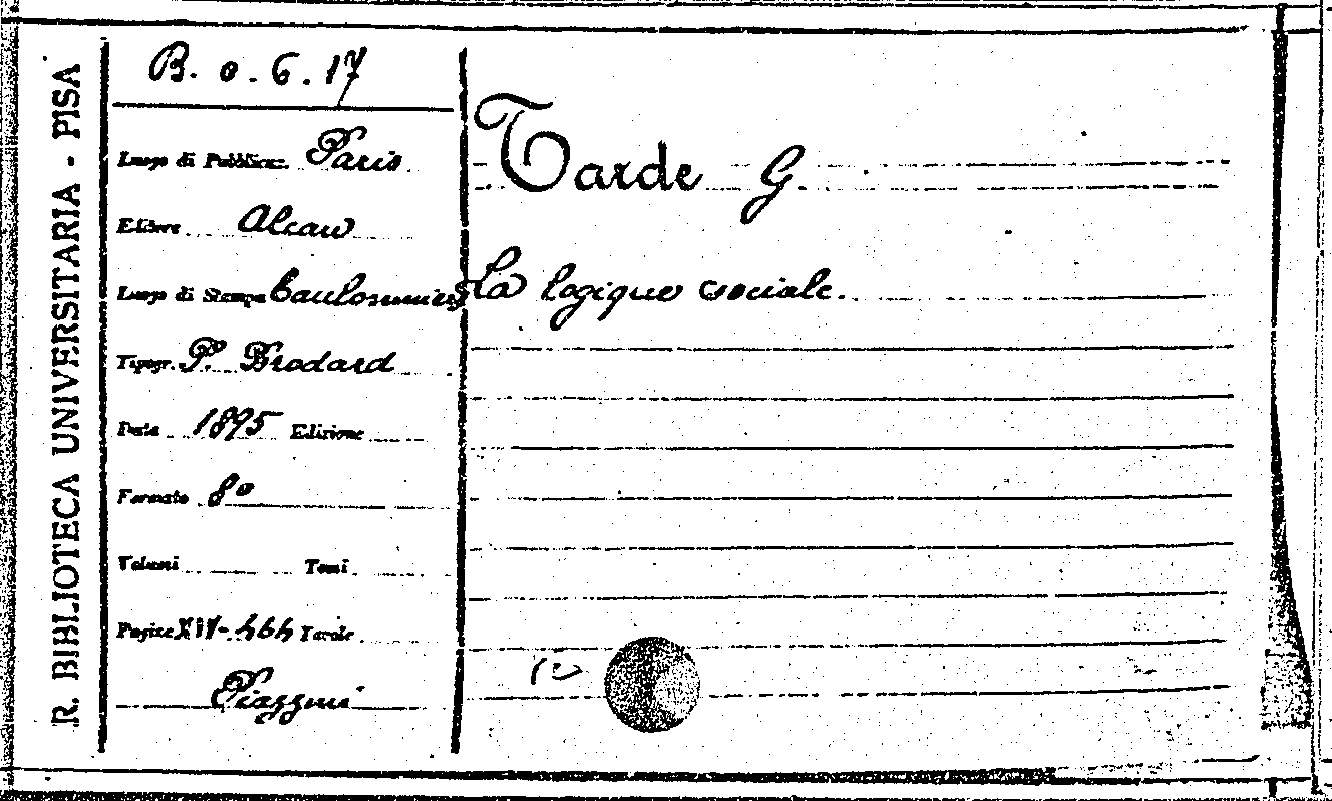 R. BIBLIOTECA UNIVERSITARIA - PISA
B. o. 6. 17
Luogo di Pubblicaz. Paris
Editore Alcan
Luogo di Stampa Coulommiers
Tipogr. P. Brodard
Data 1895 Edizione
Formato 8°
Volumi Tomi
Pagine XIV-464 Tavole
Piazzini
Tarde G.
La logique sociale.